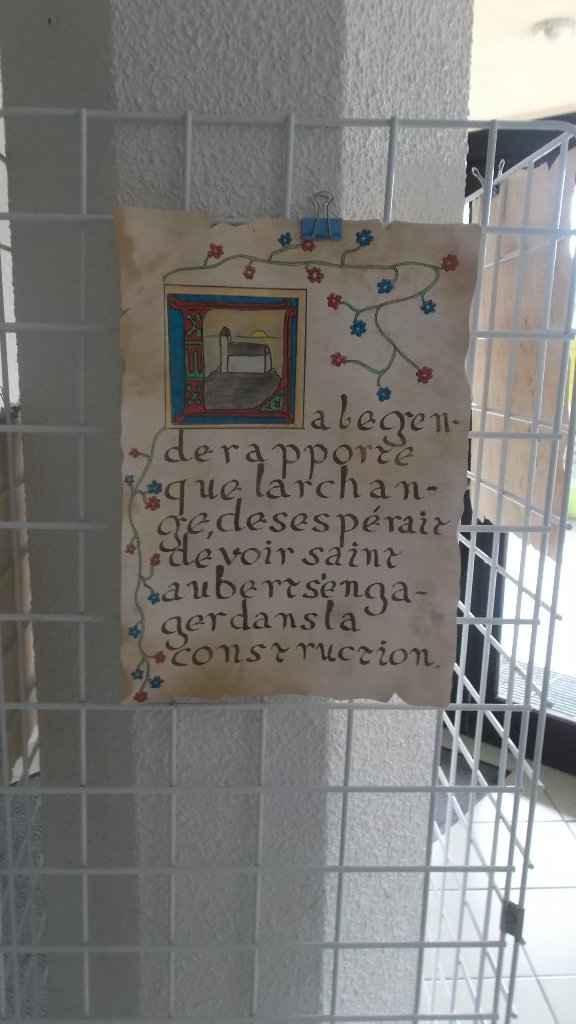 La legen-
de rapporte
que larchan-
ge, desespérait
de voir saint
aubert s'enga-
ger dans la
construction.